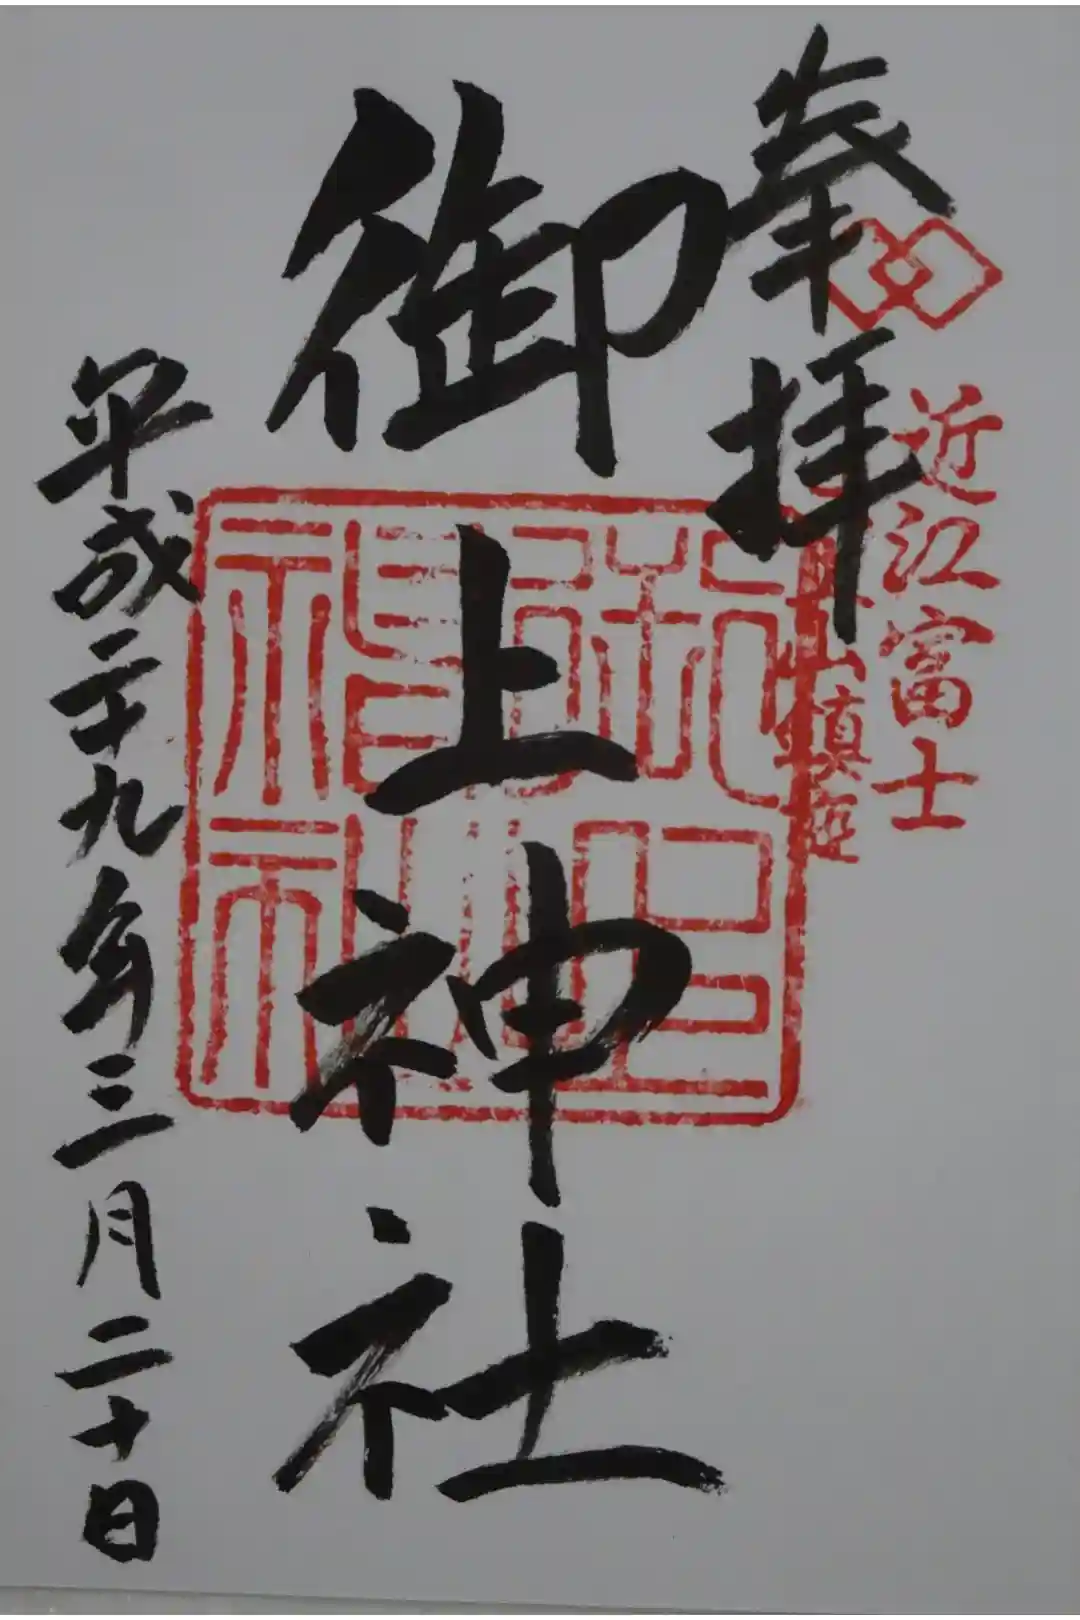 近江富士
三上山鎮座
奉拝
御上神社
平成二十九年三月二十日